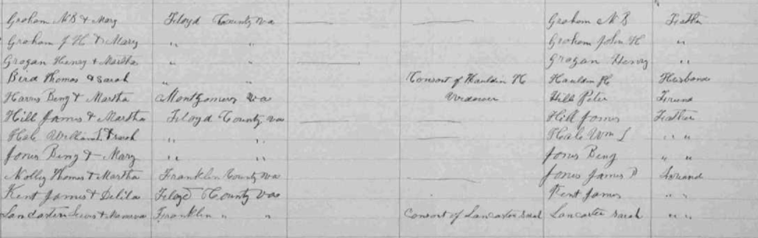 Graham N B & Mary Floyd County Va Graham N B Father
Graham J H & Mary " " Graham John H " "
Grogan Henry & Martha " " Grogan Henry " "
Bird Thomas & Sarah " " Consort of Hauldin H Hauldin H Husband
Harris Benj & Martha Montgomery Va Hill Peter Friend
Hill James & Martha Floyd County Va Hill James Father
Hale & " " Hale Wm L " "
Jones Benj & Mary " " Jones Benj " "
Nolley Thomas & Martha Franklin County Va Jones James P Friend
Kent James & Delila Floyd County Va Kent James
Lancaster & Franklin " " Consort of Lancaster Sarah Lancaster Sarah " "